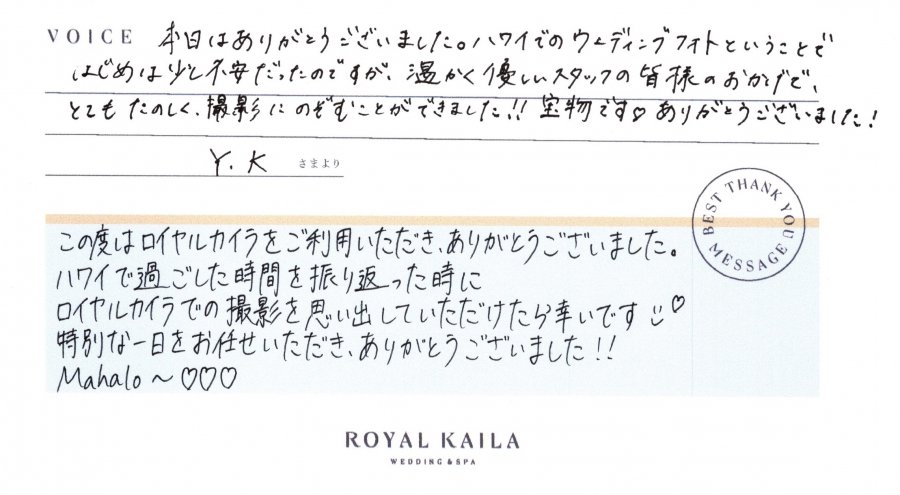 VOICE 本日はありがとうございました。ハワイでのウェディングフォトということで
はじめは少し不安だったのですが、温かく優しいスタッフの皆様のおかげで、
とても たのしく、撮影に のぞむことができました!! 宝物です♡ ありがとうございました!
Y.K さまより
BEST THANK YOU MESSAGE
この度はロイヤルカイラをご利用いただき、ありがとうございました。
ハワイで過ごした時間を振り返った時に
ロイヤルカイラでの撮影を思い出していただけたら幸いです ♡
特別な一日をお任せいただき、ありがとうございました!!
Mahalo~♡♡♡
ROYAL KAILA
WEDDING & SPA